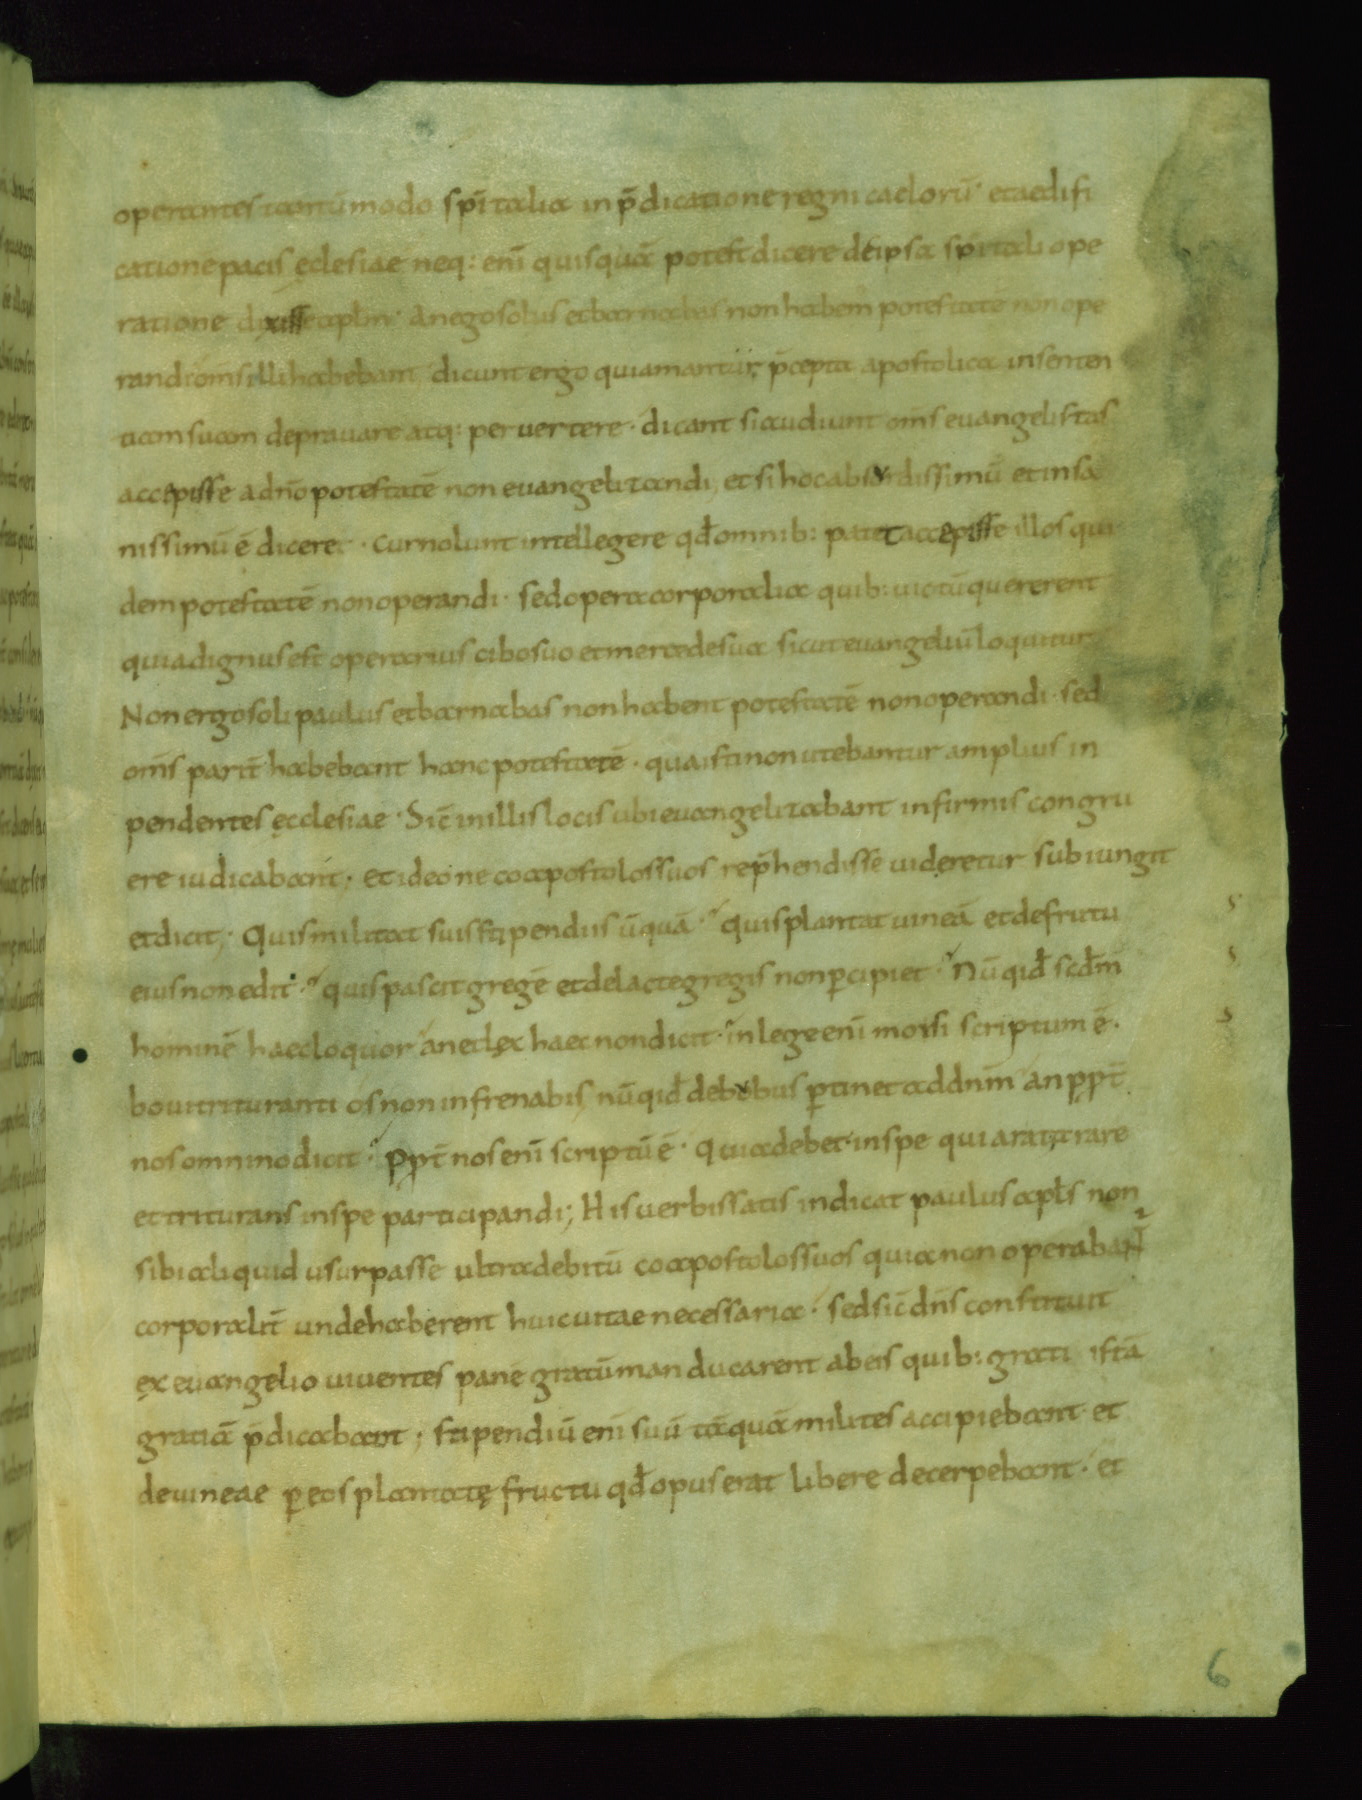 operantes tantūmodo spīritalia in p̄dicatione regni caelorū· et aedifi
catione pacis ęclesiae neq: enī quisquā potest dicere de ipsa spīritali ope
ratione dixisse aplm· An ego solus et barnabas non habem potestatē non ope
randi om̄s illi habebant dicunt ergo quiamantur p̄cepta apostolica in senten
tiam suam deprauare atq: peruertere· dicant si audiunt om̄s euangelistas
accepisse a dn̄o potestatē non euangelizandi, et si hoc absurdissimū et insa
nissimū ē dicere· Cur nolunt intellegere qd̄ omnib: patet accepisse illos qui
dem potestatē non operandi· sed opera corporalia quib: uictū quererent
quia dignus est operarius cibo suo et mercede sua sicut euangeliū loquitur
Non ergo soli paulus et barnabas non habent potestatē non operandi· sed
om̄s parit̄ habebant hanc potestatē· qua isti non utebantur amplius in
pendentes ęcclesiae· Sic̄ in illis locis ubi euangelizabant infirmis congru
ere iudicabant· et ideo ne coapostolos suos rep̄hendisse uideretur subiungit
et dicit; Quis militat suis stipendiis ūquā· quis plantat uineā et de fructu
eius non edit· quis pascit gregē et de lacte gregis non p̄cipiet· Nūquid scdm̄
hominē haec loquor an et lęx haec non dicit· in lege enī moisi scriptum ē·
boui trituranti os non infrenabis nūquid de bobus p̄tinet ad dnm̄ an ppt̄
nos omnino dicit· ppt̄ nos enī scriptū ē· Quia debet in spe qui arat arare
et triturans in spe participandi; His uerbis satis indicat paulus apls non
sibi aliquid usurpasse ultra debitū coapostolos suos quia non operabant
corporalit̄ unde haberent huic uitae necessaria· sed sic̄ dn̄s constituit
ęx euangelio uiuentes panē gratū manducarent ab eis quib: grati istā
gratiā p̄dicabant; stipendiū enī suū tāquā milites accipiebant et
de uineae p̄ eos plantatę fructu qd̄ opus erat libere decerpebant· et
6